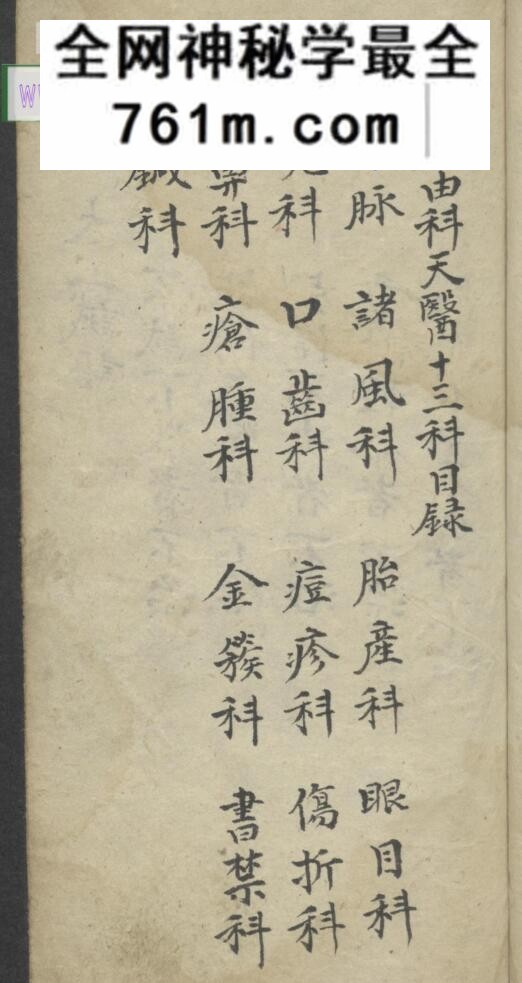 全网神秘学最全
761m.com
由科天醫十三科目録
脉 諸風科 胎產科 眼目科
科 口齒科 痘疹科 傷折科
科 瘡腫科 金簇科 書禁科
科